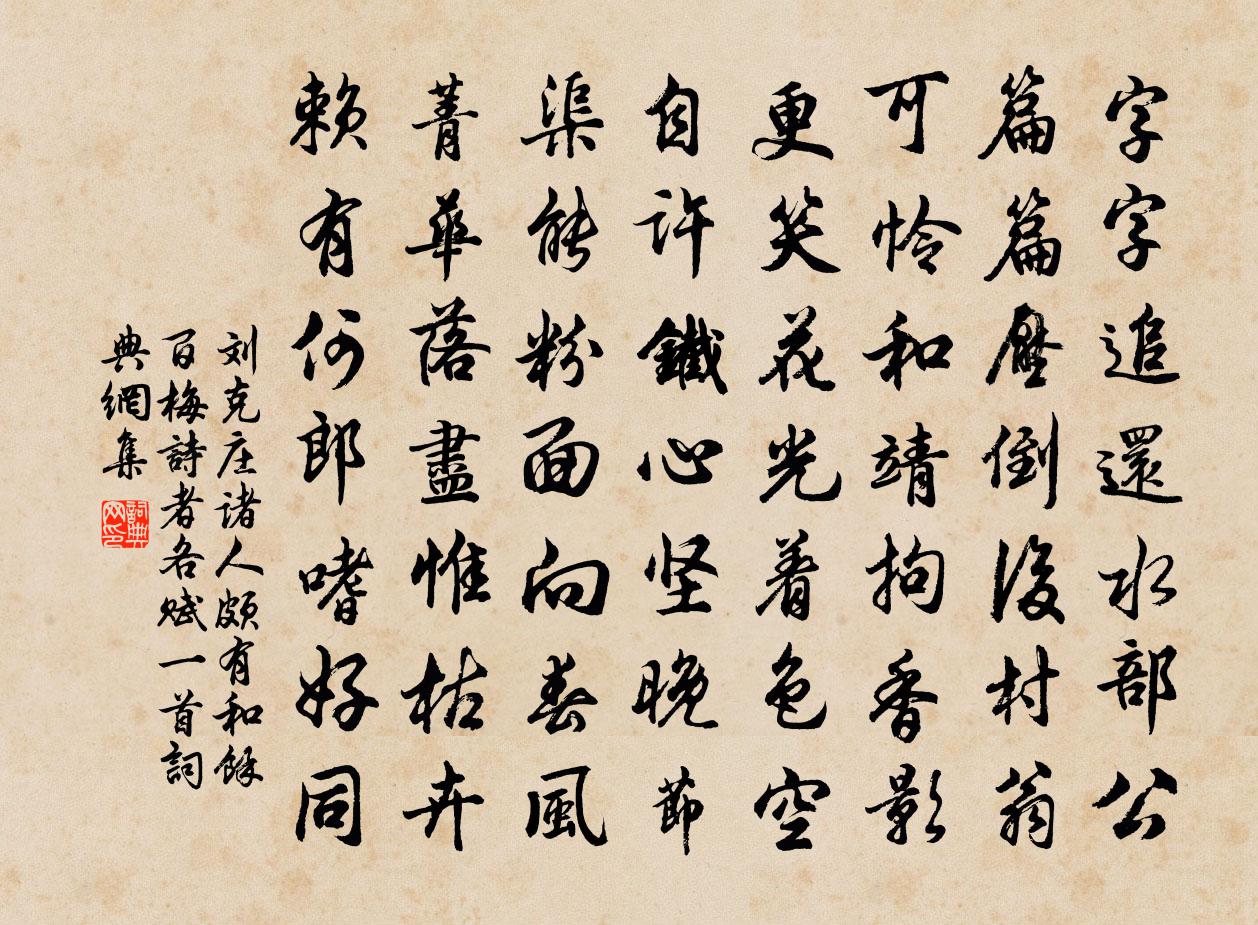 字字追還水部公
篇篇壓倒後村翁
可怜和靖拘香影
更笑花光着色空
自許鐵心坚晚節
渠能粉面向春風
菁華落盡惟枯卉
賴有何郎嗜好同
刘克庄诸人颇有和馀
百梅詩者各赋一首詞
典網集
詞典网印